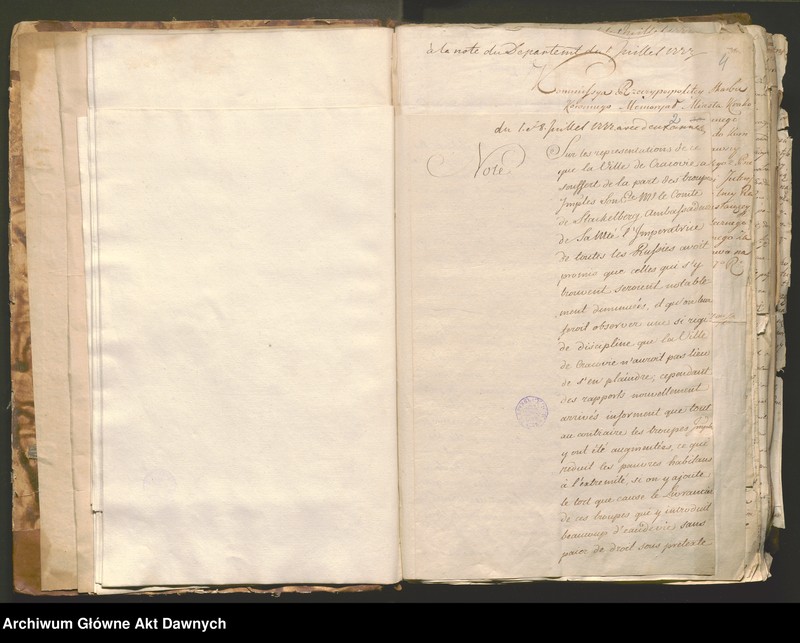 à la note du Departemt du 1 Juillet 1777
4
Kommissya Rzeczypospolitey Skarbu
Koronnego Memoryał Miasta Krako
du 1 et 8 Juillet 1777 avec deux annexes
2
Note
Sur les representations de ce
que la Ville de Cracovie, a
souffert de la part des troupes
Imples Son Ce Mr le Comte
de Stackelberg Ambassadeur
de Sa Mté l'Imperatrice
de toutes les Russies avoit
promis que celles qui s'y
trouvent seroient notable
ment diminuées, et qu'on leur
feroit observer une si regi
de discipline que la Ville
de Cracovie n'auroit pas lieu
de s'en plaindre, cependant
des rapports nouvellement
arrivés informent que tout
au contraire les troupes Imples
y ont été augmentées, ce qui
réduit les pauvres habitans
à l'extremité, si on y ajoute
le tort que cause le
de ces troupes qui y introduit
beaucoup d'eaudevie, sans
paier de droit sous pretexte
Archiwum Główne Akt Dawnych